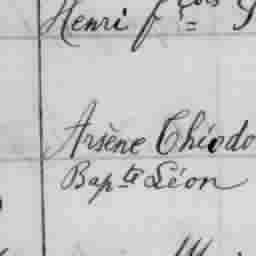 Henri fçois
Arsène Théodo
Bapte Léon